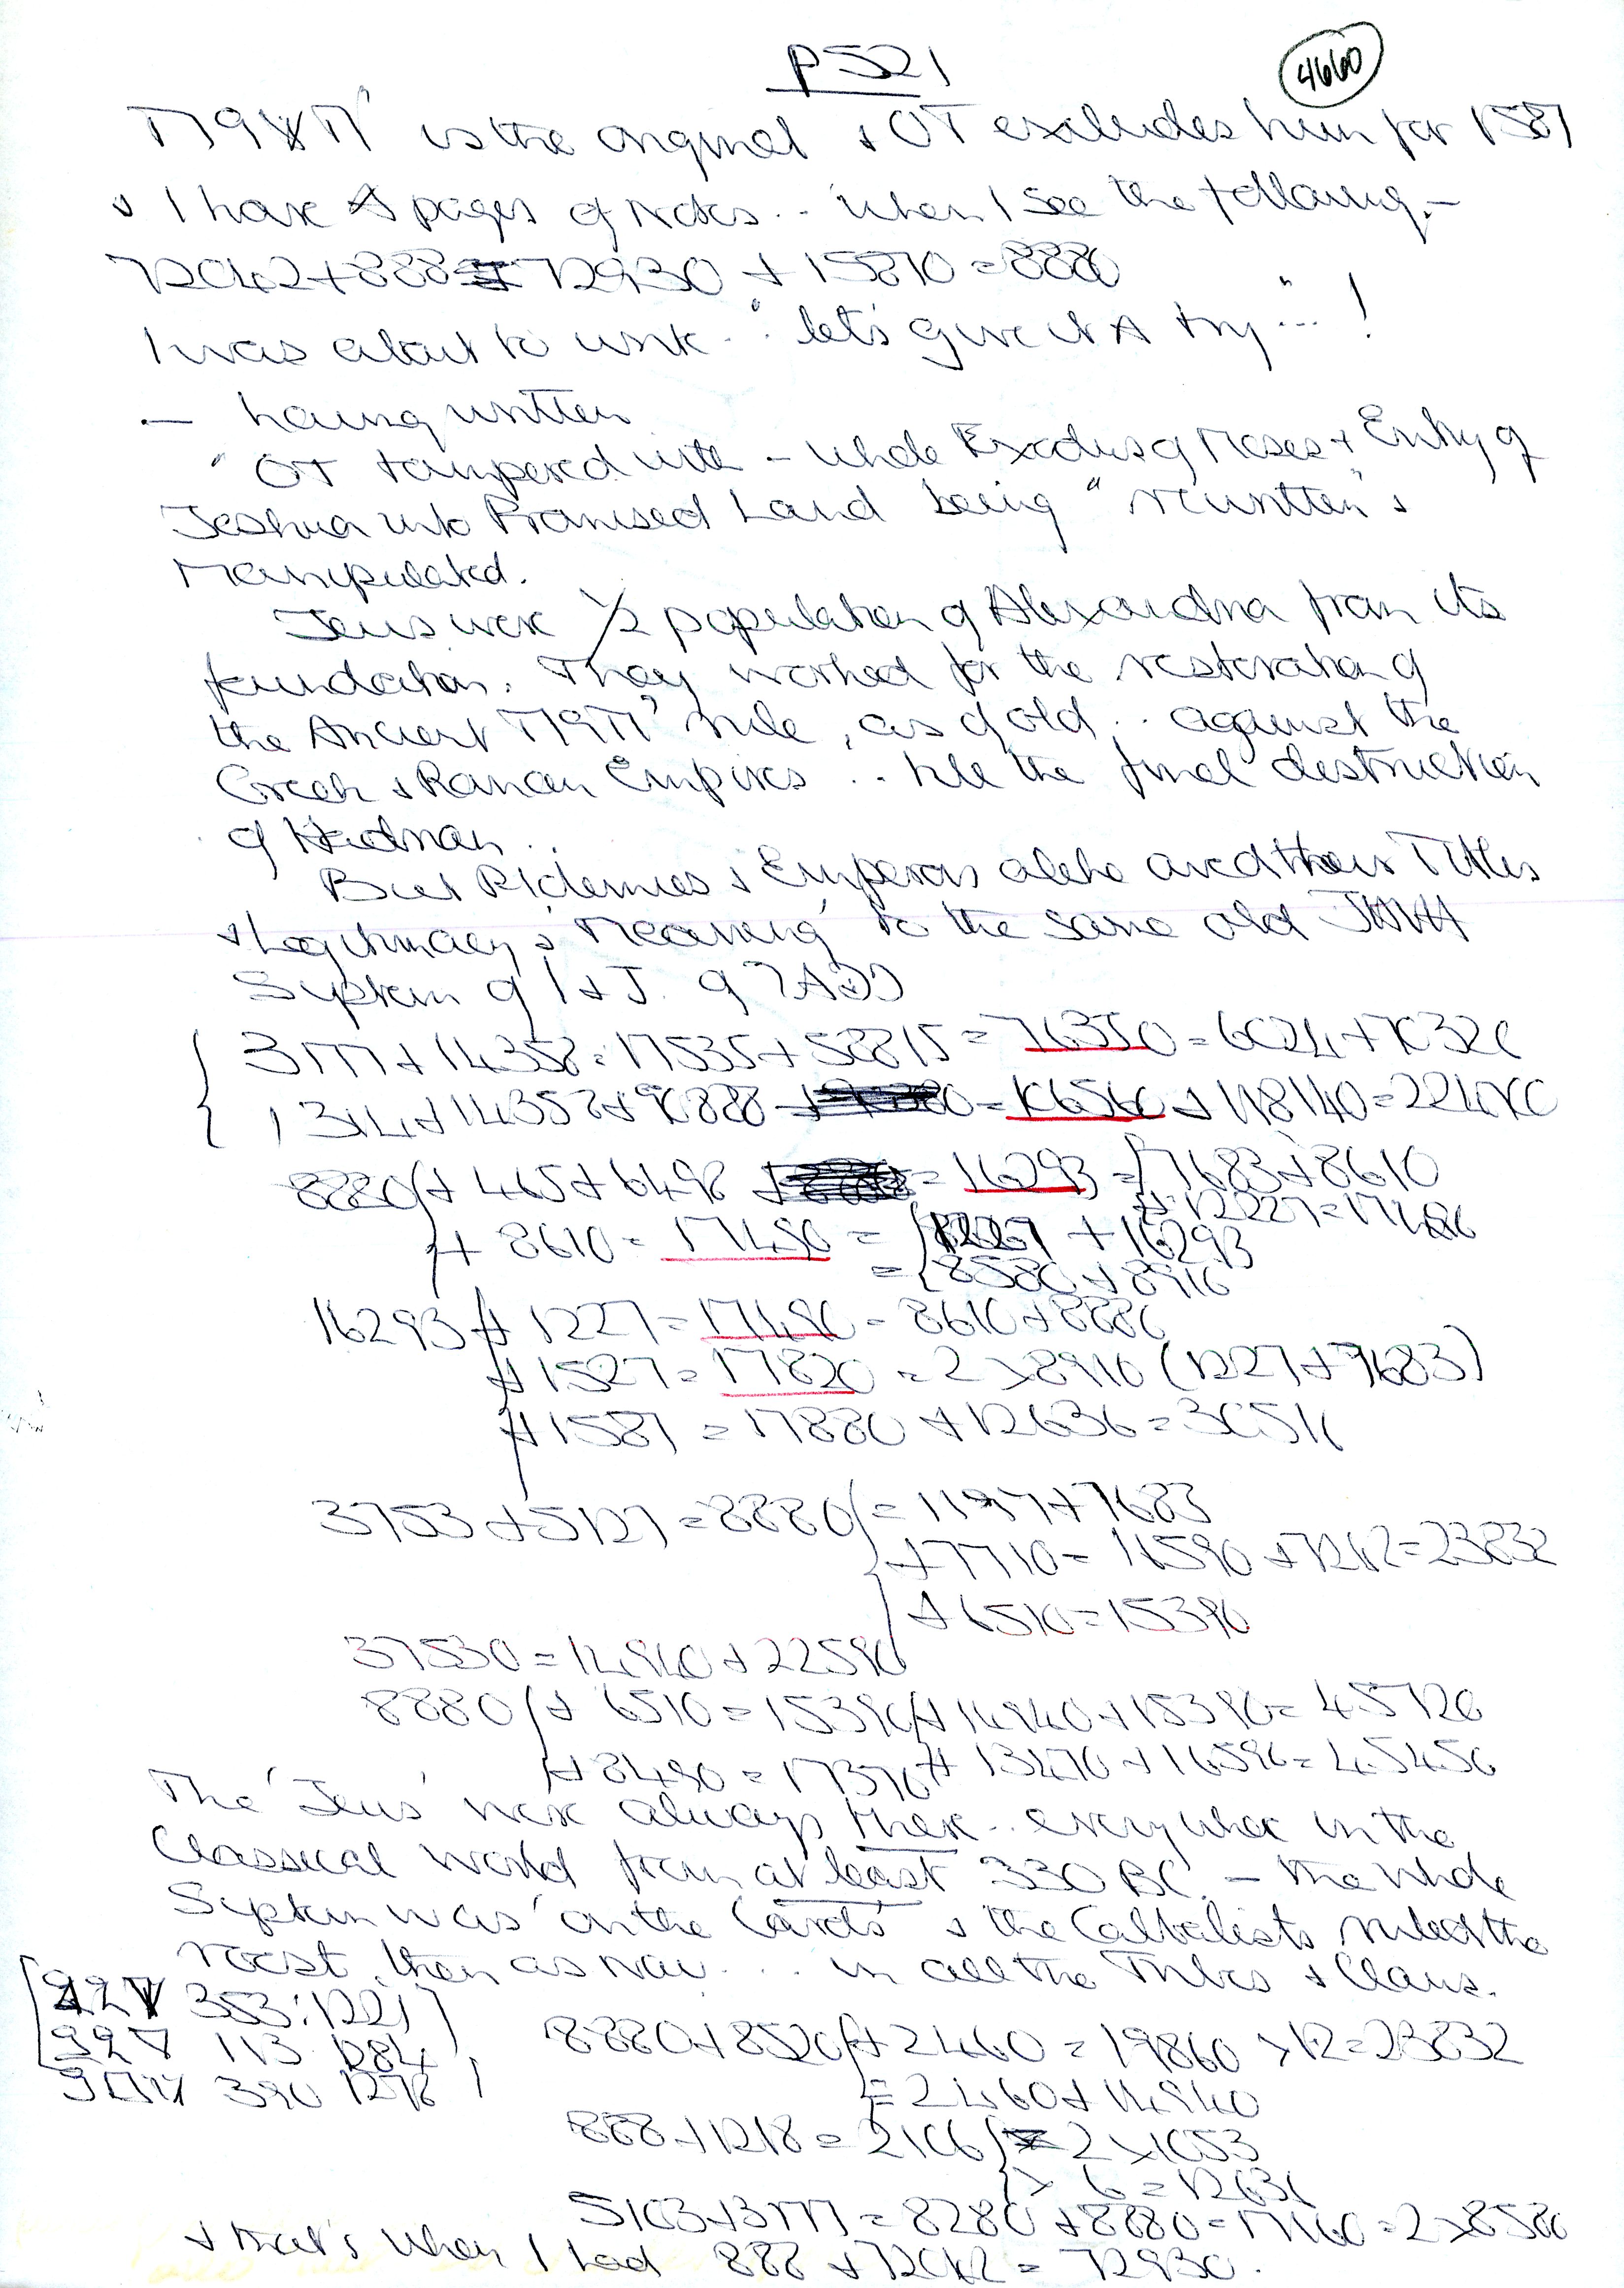 P521
4660
is the original + OT excludes him for 1587
+ I have pages of Notes .. when I see the following. –
72042+888 = 72930 + 15870 = 8880
I was about to write .. "let's give it A try" ... !
– having written
" OT tampered with – whole Exodus of Moses + Entry of
Joshua into Promised Land being "rewritten" +
Manipulated.
Jews were 1/2 population of Alexandria from its
foundation. They worked for the restoration of
the Ancient rule, as of old .. against the
Greek + Roman Empires .. till the final destruction
of Hadrian ..
But Ptolemies + Emperors alike owed their Titles
+ Legitimacy + 'Meaning' to the same old
System of I + J. of
3177+14358=17535+58815=76350=6024+70326
1314+14358+90888 = 106560 + 118140=224700
8880 + 465+6498 = 16293 = 7683+8610
+ 8610 = 17490 = + 16293
= 8580+8910
16293 + 1227 = 17490 = 8610+8880
+ 1527 = 17820 = 2 x 8910 (1227+7683)
+ 1587 = 17880 + 12636 = 30516
3753+5127 = 8880 = 1197+7683
+7710 = 16590 + 7242=23832
+ 6510=15390
37530 = 14940+22590
8880 + 6510 = 15390 + 14940+15390= 45720
+ 8490 = 17370 + 13470 + 16590= 45450
The 'Jews' were always there .. everywhere in the
Classical world from at least 330 BC. – the whole
System was 'on the Cards' + the Cabbalists ruled the
roost, then as now ... in all the Tribes + Clans.
353: 1221
113 1284
390 1276
8880+8520 + 2460 = 19860 x 12=23832
= 2460+14940
888+1218 = 2106 = 2 x 1053
x 6 = 12636
5103+3177 = 8280 +8880=17160 = 2x8580
+ that's when I had 888 + 72042 = 72930.